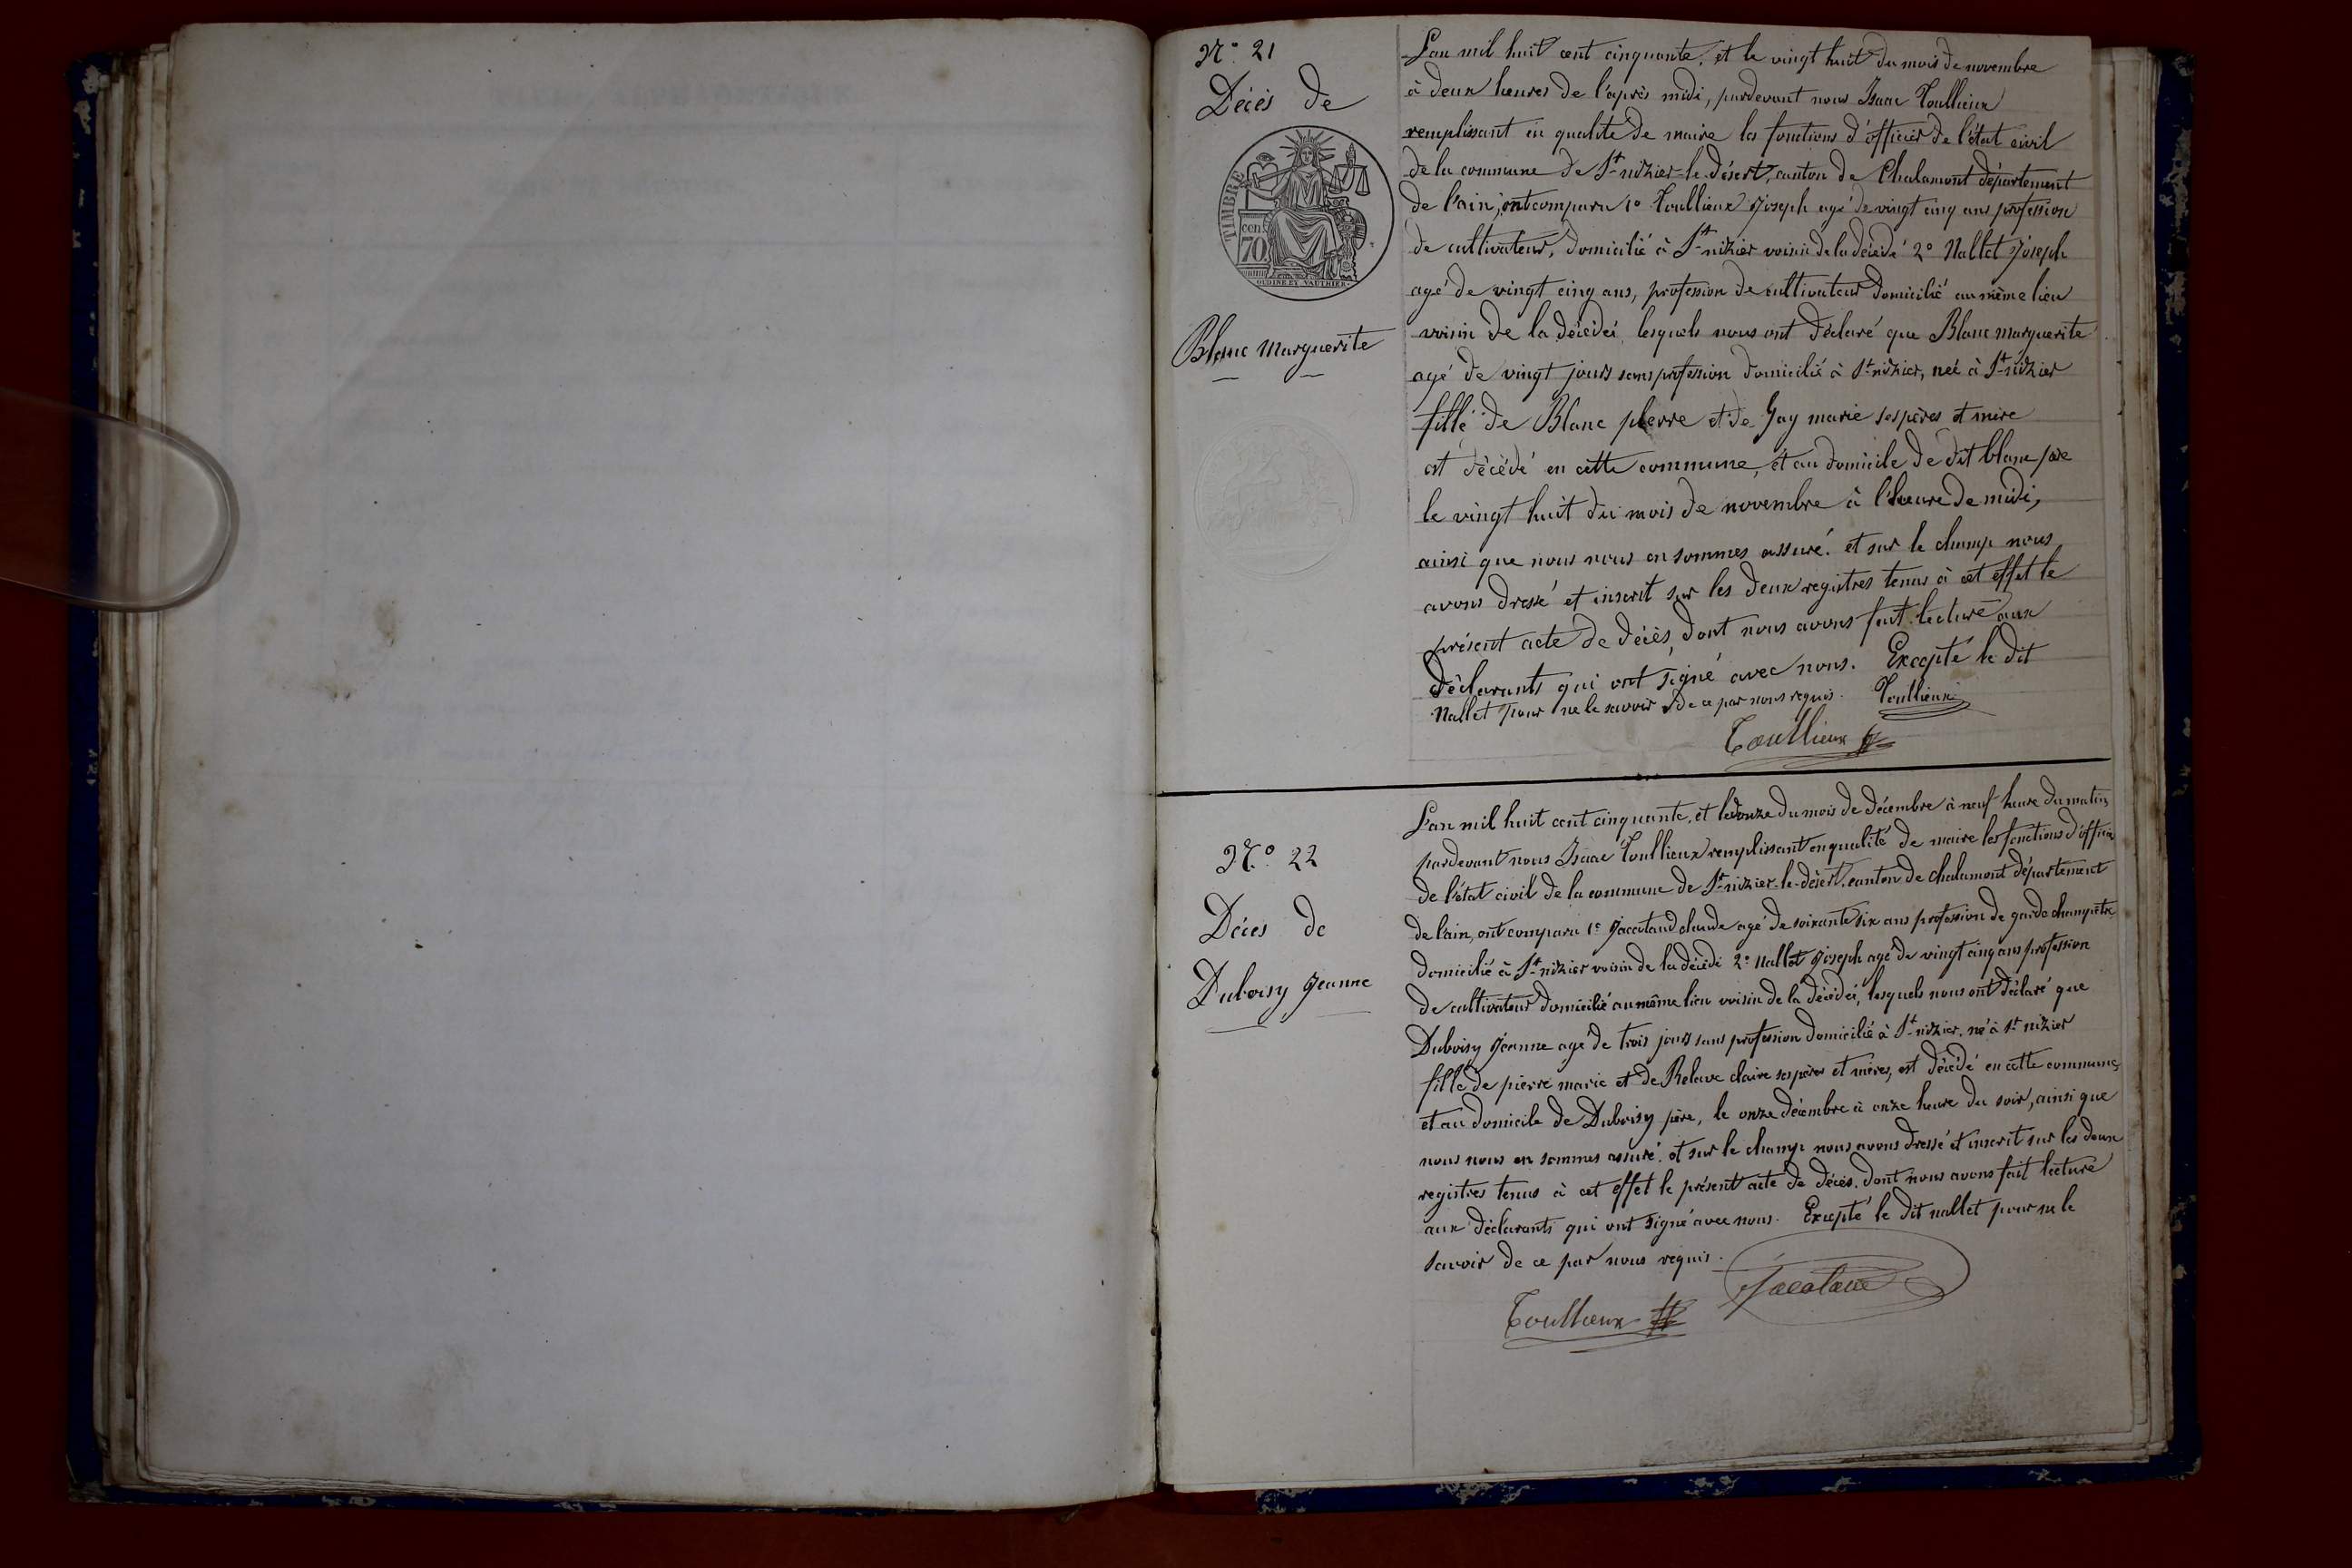 N.° 21
Décès de
TIMBRE
cen.
70.
OUDINE EY. VAUTHIER.
Blanc Marguerite
L'an mil huit cent cinquante, et le vingt huit du mois de novembre
à deux heures de l'après midi, pardevant nous Isaac Toullieux
remplissant en qualité de maire les fonctions d'officier de l'état civil
de la commune de St nizier-le-désert, canton de Chalamont département
de l'ain, ont comparu 1° Toullieux Joseph agé de vingt cinq ans profession
de cultivateur, domicilié à St nizier voisin de la décédé 2° Nallet Joseph
agé de vingt cinq ans, profession de cultivateur domicilié au même lieu
voisin de la décédé lesquels nous ont déclaré que Blanc marguerite
agé de vingt jours sans profession domicilié à St nizier, neé à St nizier
fille de Blanc pierre et de Gay marie ses pères et mère
est décédé en cette commune, et au domicile de dit blanc père
le vingt huit du mois de novembre à l'heure de midi,
ainsi que nous nous en sommes assuré. et sur le champ nous
avons dressé et inscrit sur les deux registres tenus à cet effet le
présent acte de décès, dont nous avons fait lecture aux
déclarants qui ont signé avec nous. Excepté le dit
Nallet pour ne le savoir de ce par nous requis. Toullieux
Toullieux
N.° 22
Décès de
Duboisy Jeanne
L'an mil huit cent cinquante, et le douze du mois de décembre à neuf heure du matin
pardevant nous Isaac Toullieux remplissant en qualité de maire les fonctions d'officier
de l'état civil de la commune de St nizier-le-désert, canton de chalamont département
de l'ain, ont comparu 1° Jacataud claude agé de soixante six ans profession de garde champêtre
domicilié à St nizier voisin de la décédé 2° nallet Joseph agé de vingt cinq ans profession
de cultivateur domicilié au même lieu voisin de la décédeé, lesquels nous ont déclaré que
Duboisy Jeanne agé de trois jours sans profession domicilié à St nizier, né à St nizier
fille de pierre marie et de Relave claire ses pères et mères, est décédé en cette commune,
et au domicile de Duboisy père, le onze décembre à onze heure du soir, ainsi que
nous nous en sommes assuré. et sur le champ nous avons dressé et inscrit sur les deux
registres tenus à cet effet le présent acte de décès. dont nous avons fait lecture
aux déclarants qui ont signé avec nous. Excepté le dit nallet pour ne le
savoir de ce par nous requis.
Toullieux